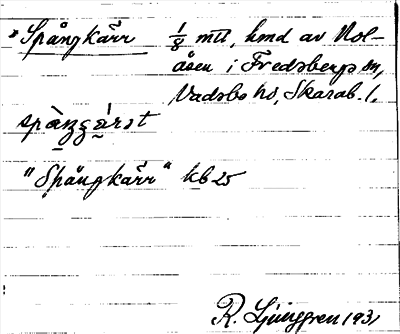 Spångkärr 1/8 mtl, hmd av Nol-
åsen i Fredsbergs sn,
Vadsbo hd, Skarab. l.
spàŋʒæ̀rət
"Spångkärr" kb 25
R. Ljunggren 1931